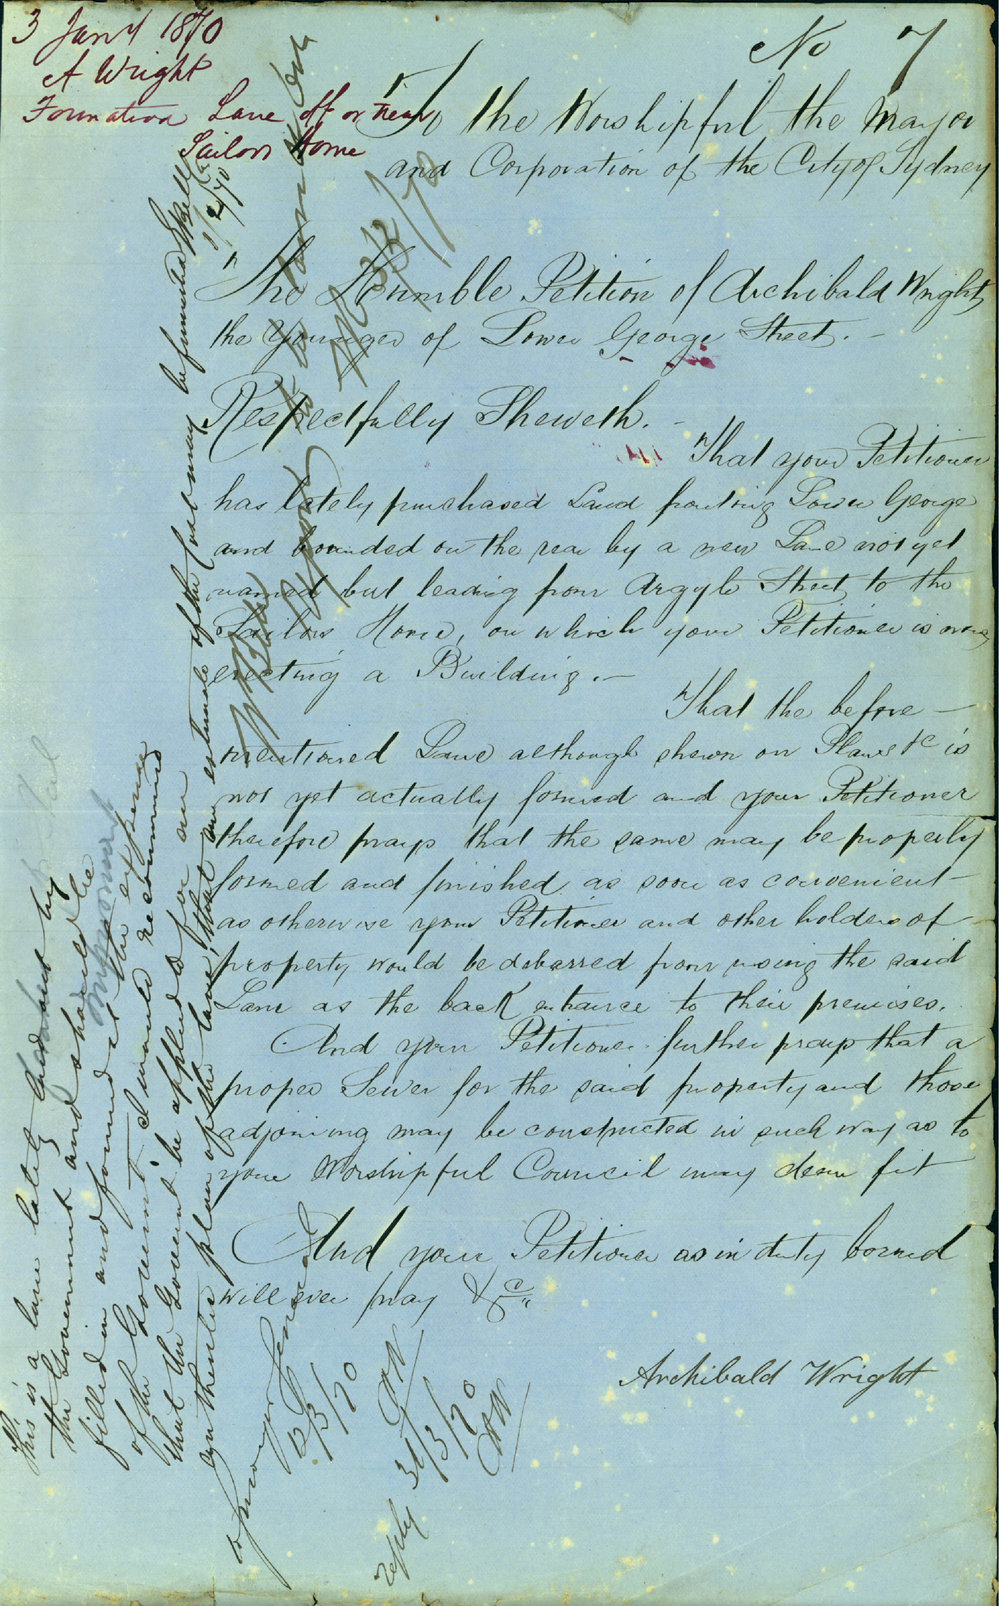 3 Jany 1870
A Wright
Formation Lane off or near
Sailors Home
No 7
To the Worshipful the Mayor
and Corporation of the City of Sydney
"The Humble Petition of Archibald Wright
the Younger of Lower George Street. -
Respectfully Sheweth. -
That your Petitioner
has lately purchased Land fronting Lower George
and bounded on the rear by a new Lane not yet
named but leading from Argyle Street to the
Sailors Home, on which your Petitioner is now
erecting a Building. -
That the before -
mentioned Lane although shewn on Plans &c is
not yet actually formed and your Petitioner
therefore prays that the same may be properly
formed and finished as soon as convenient -
as otherwise your Petitioner and other holders of -
property would be debarred from using the said
Lane as the back entrance to their premises.
And your Petitioner further prays that a
proper Sewer for the said property and those
adjoining may be constructed in such way as to
your Worshipful Council may deem fit
And your Petitioner as in duty bound
will ever pray &c "
Archibald Wright
This is a lane lately laid out by
the Government and should be
filled in and formed at the expense
of the Governmt I would recommend
that the Governt be applied to for an
authentic plan of the lane, that an estimate of the Cost may be furnished
1/2/70
3/2/70
10/3/70
reply 31/3/70